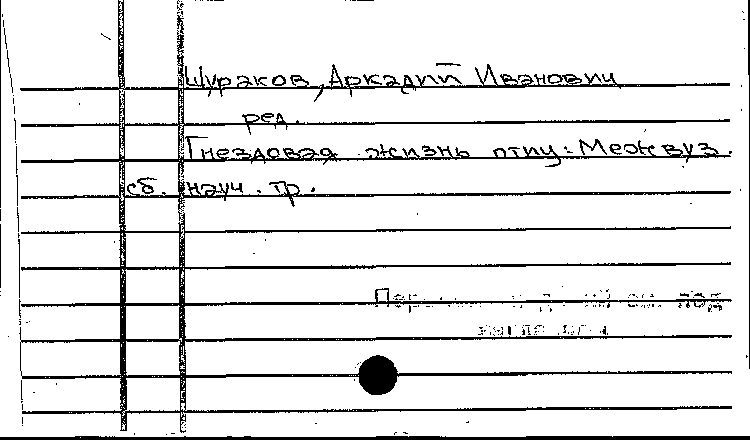 Шураков, Аркадий Иванович
ред.
Гнездовая жизнь птиц: Межвуз.
сб. науч. тр.
под